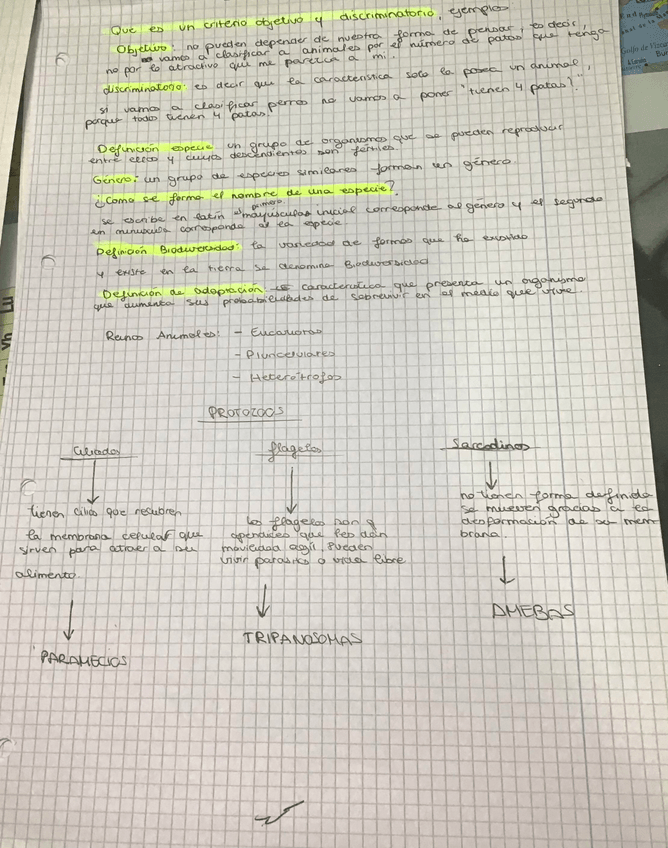 Que es un criterio objetivo y discriminatorio, ejemplos
Objetivo: no pueden depender de nuestra forma de pensar, es decir,
vamos a clasificar a animales por el número de patas que tenga
no por lo atractivo que me parezca a mi.
discriminatorio: es decir que la característica solo la posea un animal,
si vamos a clasificar perros no vamos a poner "tienen 4 patas?"
porque todos tienen 4 patas.
Definición especie: un grupo de organismos que se pueden reproducir
entre ellos y cuyos descendientes son fértiles.
Género: un grupo de especies similares forman un género.
¿Como se forma el nombre de una especie?
primero
se escribe en latín mayusculas inicial corresponde al género y el segundo
en minuscula corresponde a la especie
Definición Biodiversidad: la variedad de formas que ha existido
y existe en la tierra se denomina Biodiversidad
Definición de adaptación: característica que presenta un organismo
que aumenta sus probabilidades de sobrevivir en el medio que vive.
Reinos Animales: - Eucariotas
- Pluricelulares
- Heterótrofos
PROTOZOOS
Ciliados
flagelos
Sarcodinos
tienen cilios que recubren
la membrana celular que
sirven para atraer a su
alimento.
los flagelos son
apendices que les dan
movilidad agil. Pueden
vivir parasito o vida libre
no tienen forma definida
se mueven gracias a la
desformación de su mem
brana.
PARAMECIOS
TRIPANOSOMAS
AMEBAS